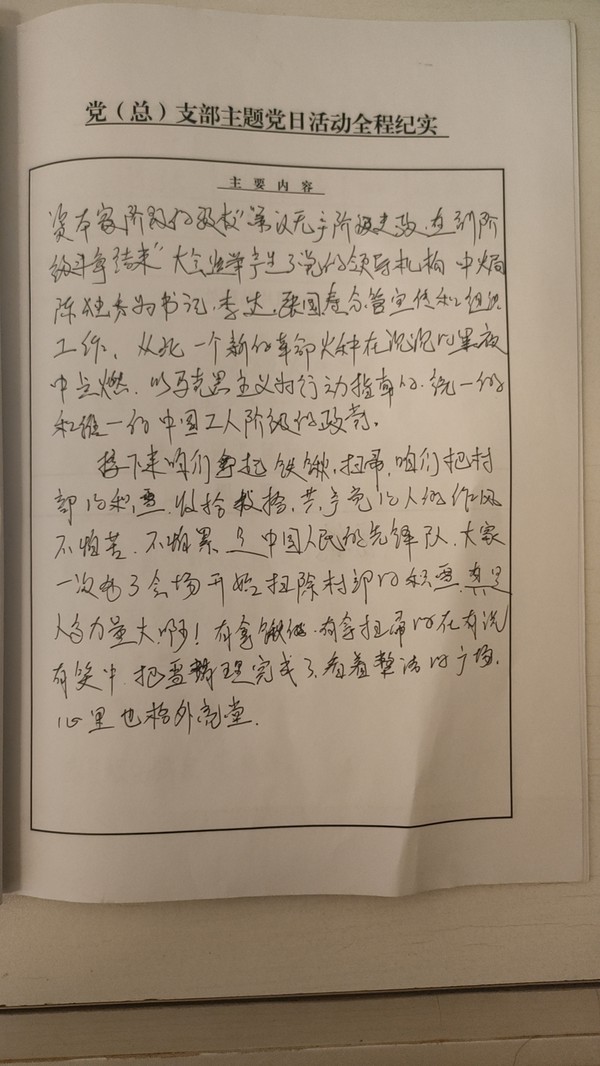 党（总）支部主题党日活动全程纪实
主要内容
资本家阶级的政权"承认无产阶级专政，直到阶
级斗争结束"大会选举产生了党的领导机构 中央局
陈独秀为书记，李达，张国焘分管宣传和组织
工作，从此一个新的革命火种在沉沉的黑夜
中点燃，以马克思主义为行动指南的，统一的
和唯一的中国工人阶级的政党。
接下来咱们拿起铁锹，扫帚，咱们把村
部的积雪，收拾收拾，共产党的人的作风
不怕苦，不怕累，是中国人民的先锋队，大家
一次出了会场开始扫除村部的积雪，真是
人多力量大啊！有拿锹的，有拿扫帚的在有说
有笑中，把雪清理完成了，看着整洁的广场，
心里也格外亮堂.